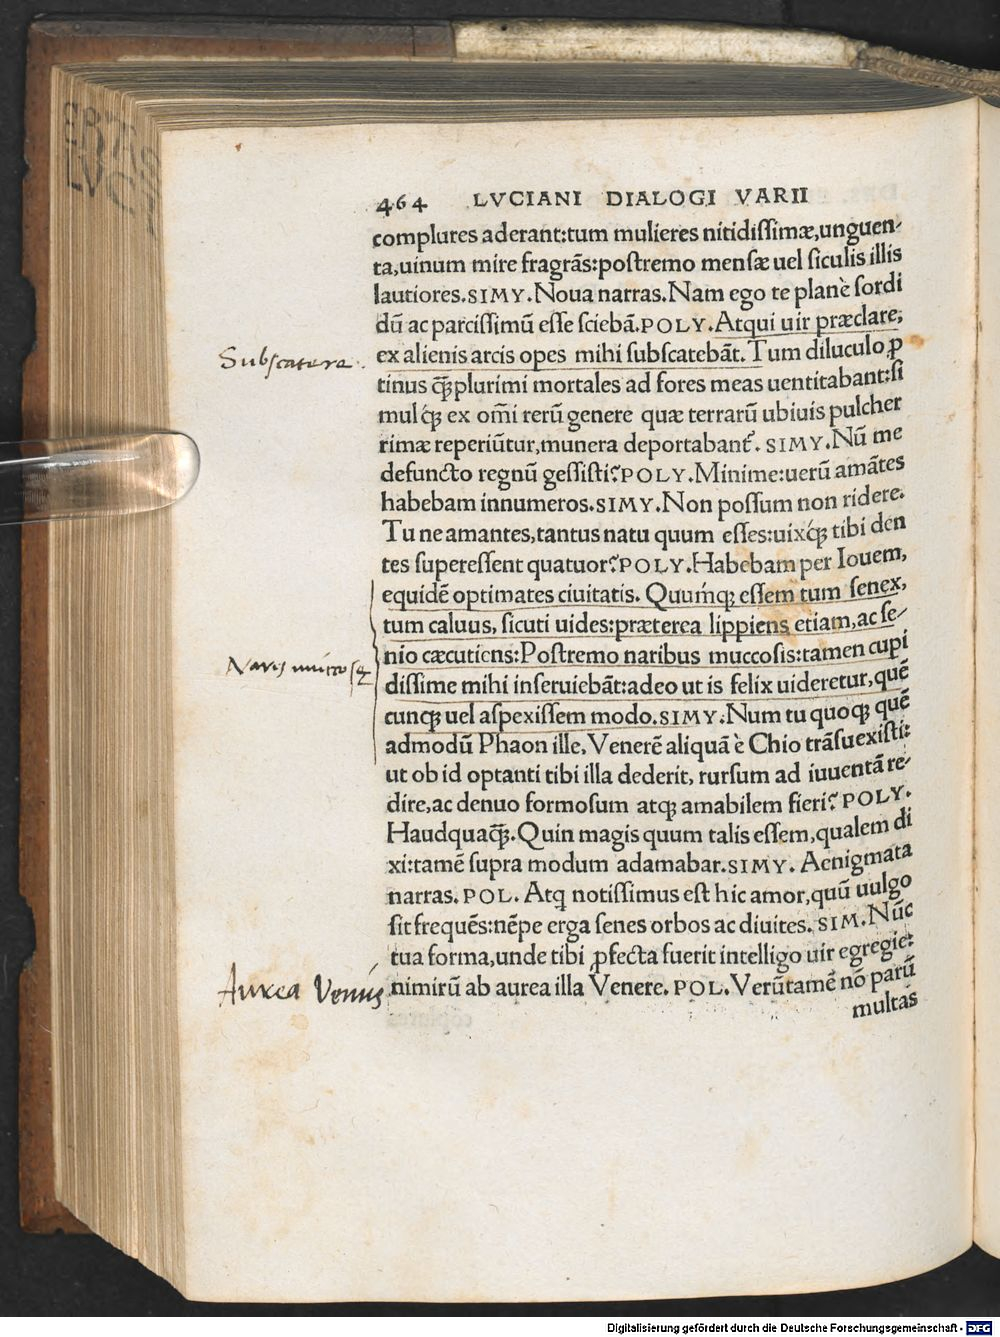 464 LVCIANI DIALOGI VARII
complures aderant:tum mulieres nitidiſſimæ,unguen-
ta,uinum mire fragrãs:poſtremo menſæ uel ſiculis illis
lautiores.SIMY.Noua narras.Nam ego te planè ſordi
dũ ac parciſſimũ eſſe ſciebã.POLY.Atqui uir præclare,
ex alienis arcis opes mihi ſubſcatebãt.Tum diluculo ꝓ
Subſcatere.
tinus ꝙ̃plurimi mortales ad fores meas uentitabant:ſi
mulꝙ́ ex om̃i rerũ genere quæ terrarũ ubiuis pulcher
rimæ reperiũtur,munera deportabant᷑. SIMY.Nũ me
defuncto regnũ geſſiſti?POLY.Minime:uerũ amãtes
habebam innumeros.SIMY.Non poſſum non ridere.
Tu ne amantes,tantus natu quum eſſes:uixꝙ́ tibi den
tes ſupereſſent quatuor?POLY.Habebam per Iouem,
equidẽ optimates ciuitatis. Quumꝙ́ eſſem tum ſenex,
tum caluus, ſicuti uides:præterea lippiens etiam,ac ſe-
nio cæcutiens:Poſtremo naribus muccoſis:tamen cupi
diſſime mihi inſeruiebãt:adeo ut is felix uideretur,quẽ
cunqꝫ uel aſpexiſſem modo.SIMY.Num tu quoqꝫ quẽ
admodũ Phaon ille, Venerẽ aliquã è Chio trãſuexiſti:
ut ob id optanti tibi illa dederit, rurſum ad iuuentã re-
dire,ac denuo formoſum atqꝫ amabilem fieri? POLY.
Haudquaꝙ̃.Quin magis quum talis eſſem,qualem di
xi:tamẽ ſupra modum adamabar.SIMY. Aenigmata
narras. POL. Atq notiſſimus eſt hic amor,quũ uulgo
ſit frequẽs:nẽpe erga ſenes orbos ac diuites. SIM.Nũc
tua forma,unde tibi ꝓfecta fuerit intelligo uir egregie:
Aurea Venus
nimirũ ab aurea illa Venere. POL. Verũtamẽ nõ parũ
multas